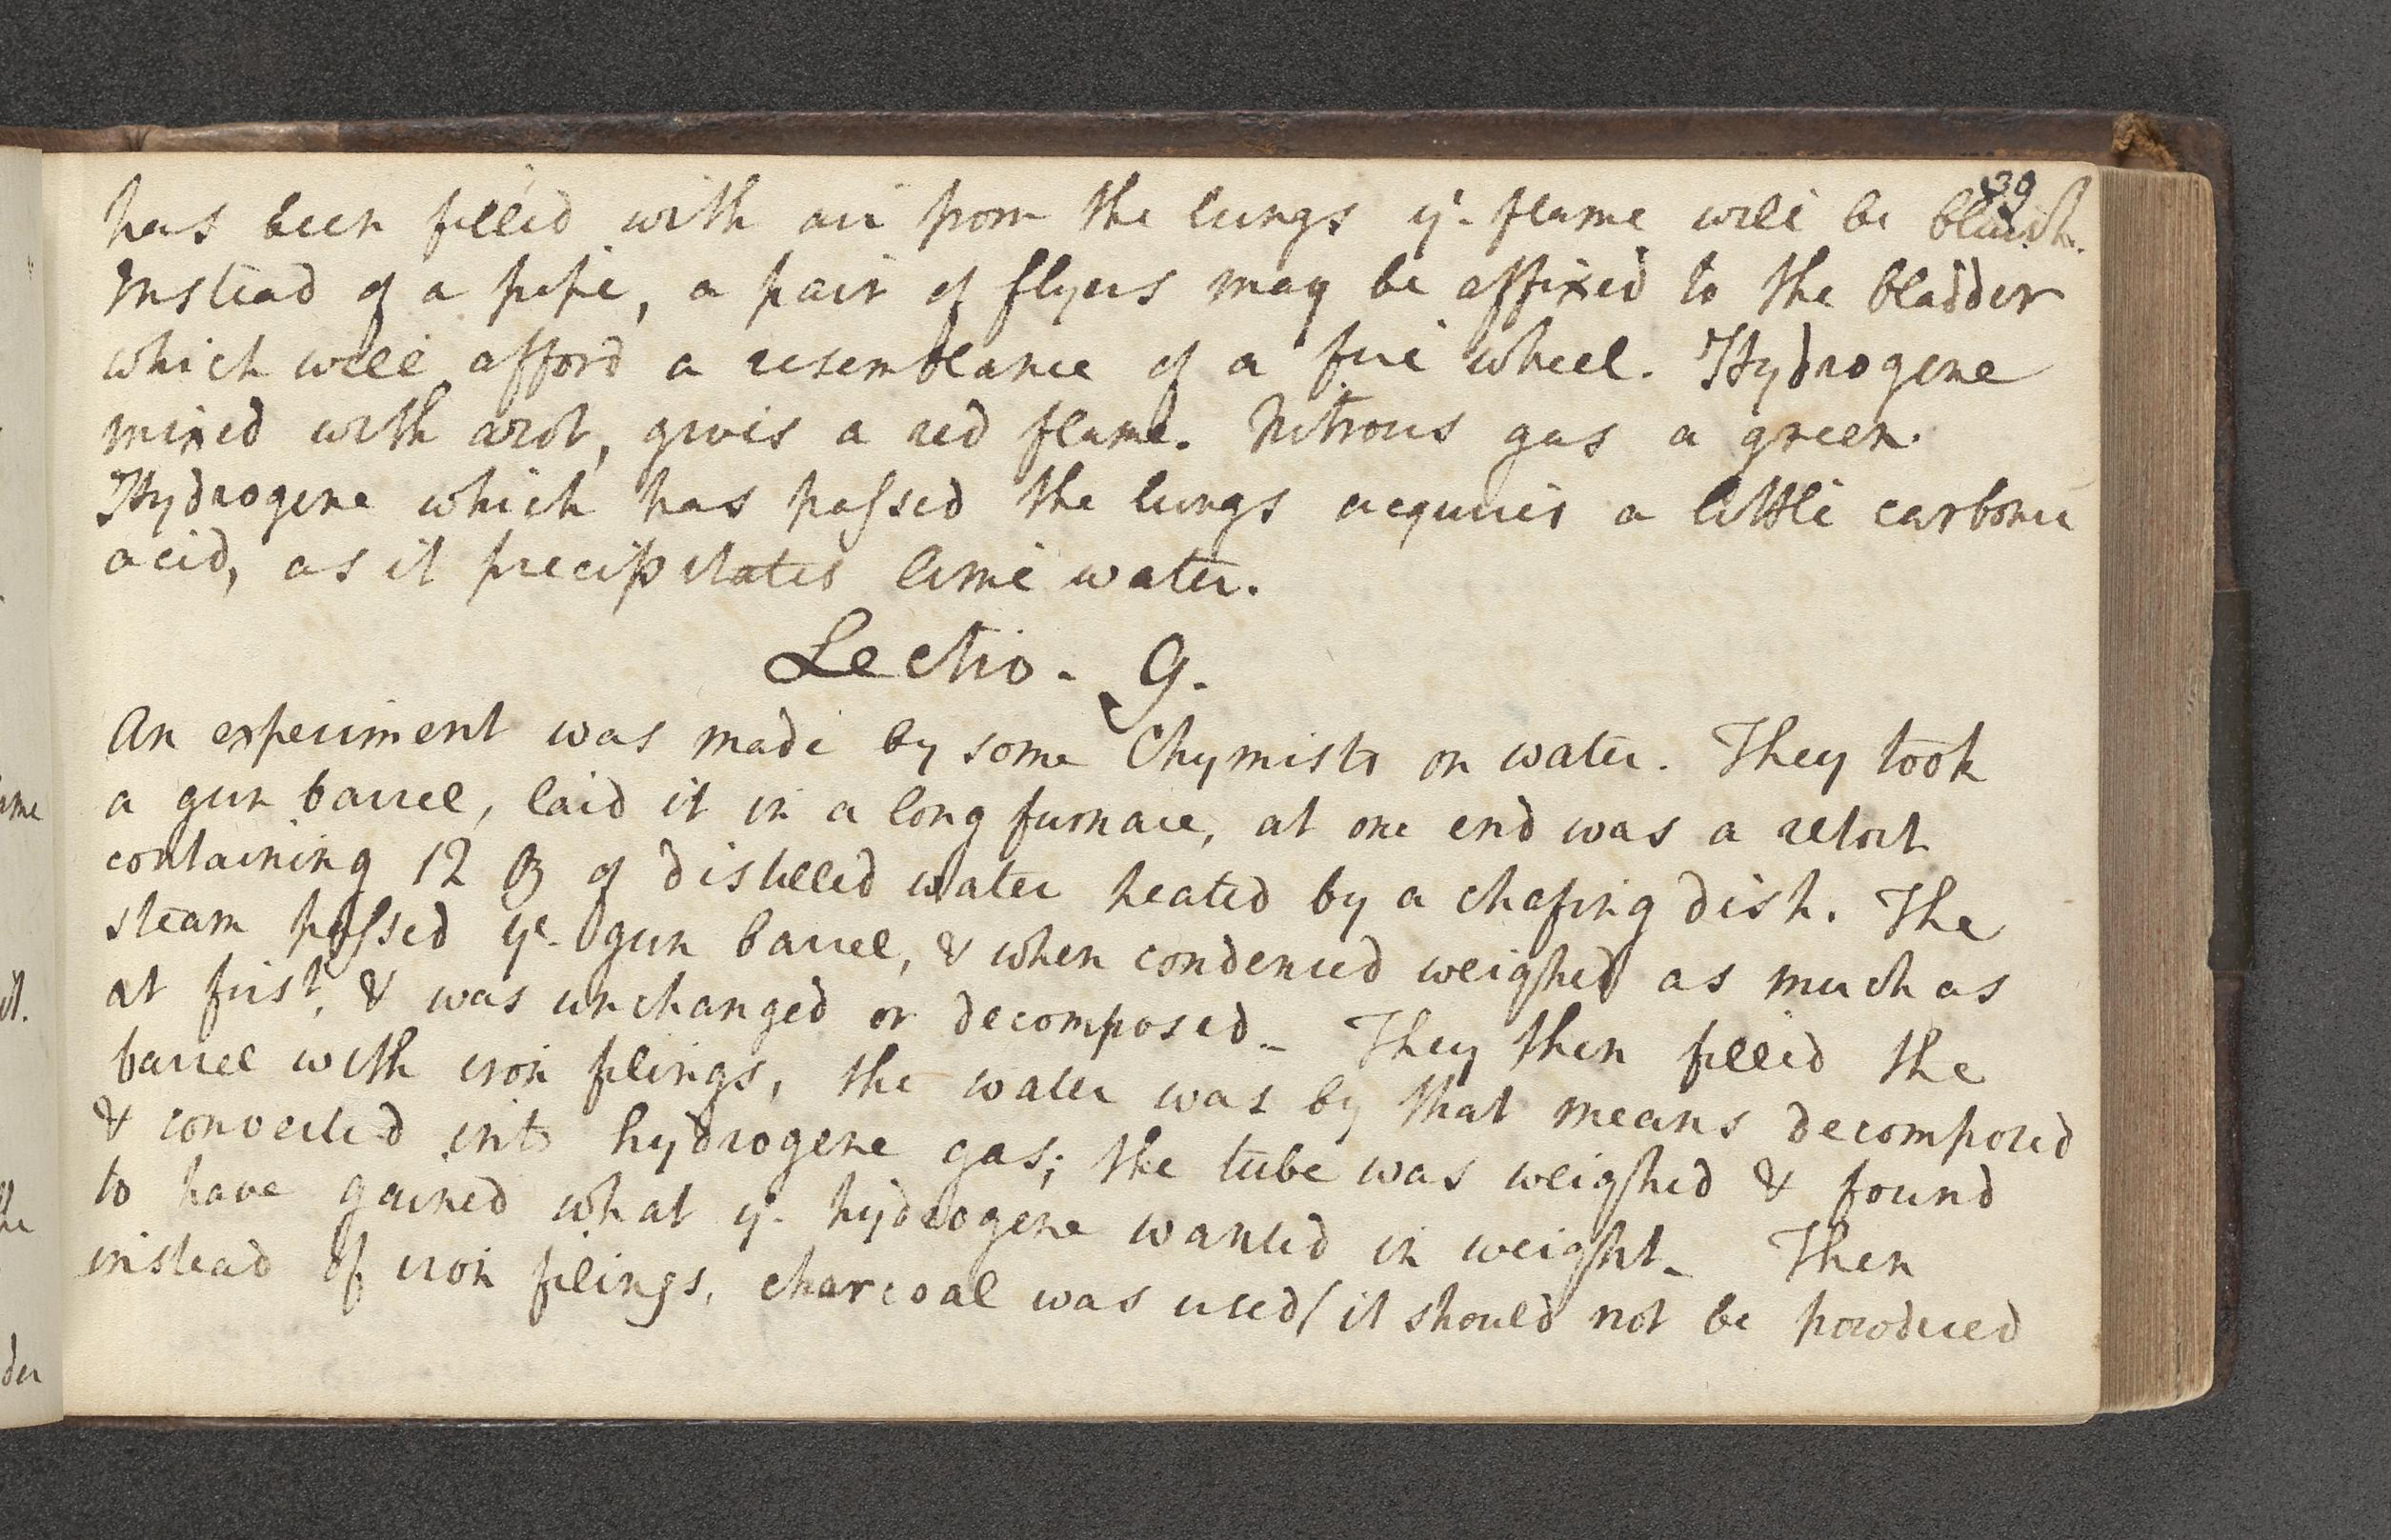 39
has been filled with air from the lungs ye. flame will be bluish.
Instead of a pipe, a pair of flyers may be affixed to the bladder
which will afford a resemblance of a fire wheel. Hydrogene
mixed with azot, gives a red flame. Nitrous gas a green.
Hydrogene which has passed the lungs acquires a little carbonic
acid, as it precipitates lime water.
Lectio. 9.
An experiment was made by some Chymists on water. They took
a gun barrel, laid it in a long furnace, at one end was a retort
containing 12 of distilled water heated by a chafing dish. The
steam passed ye. gun barrel, & when condensed weighed as much as
at first, & was unchanged or decomposed_ They then filled the
barrel with iron filings, the water was by that means decomposed
& converted into hydrogene gas; the tube was weighed & found
to have gained what ye. hydrogene wanted in weight_ Then
instead of iron filings, charcoal was used (it should not be powdered
ume
it.
the
der